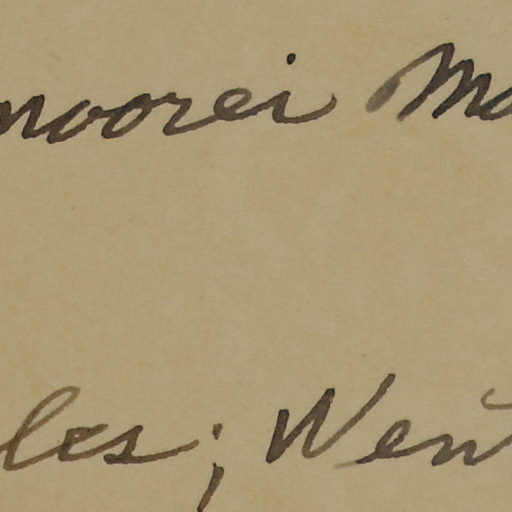 moorei Ma
les; Wen